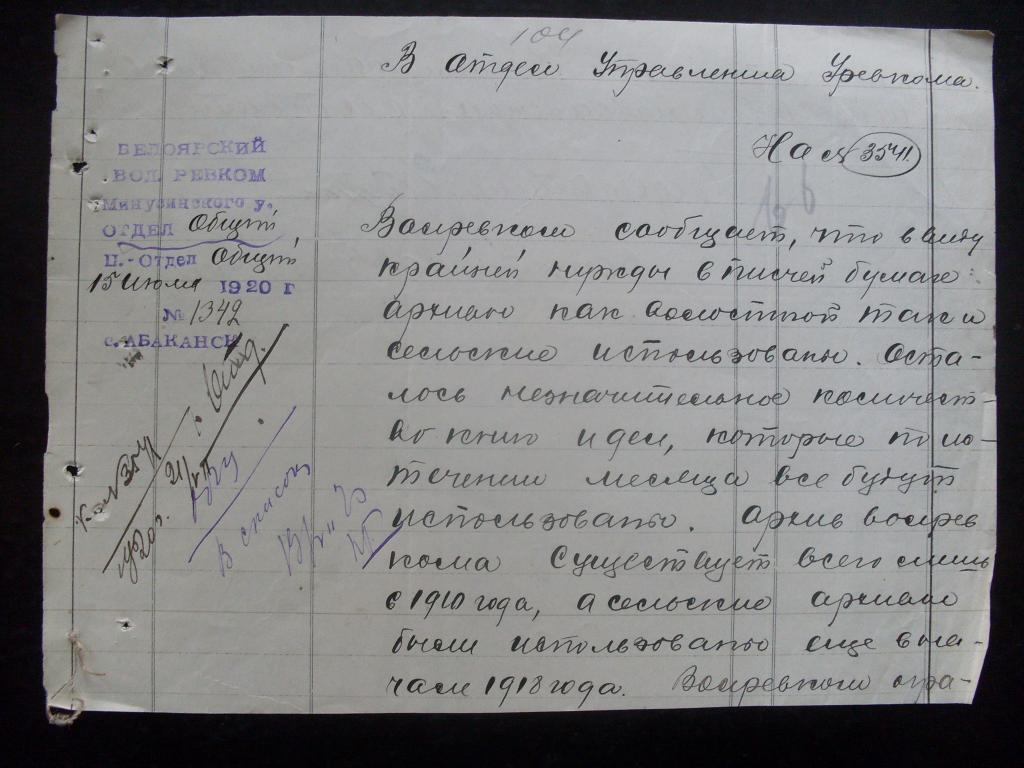 104
В Отдел Управления Уревкома.
На № 3541.
БЕЛОЯРСКИЙ
ВОЛ. РЕВКОМ
Минусинского у.
ОТДЕЛ Общий
П.-Отдел Общий
15 Июля 1920 г
№ 1342
с. АБАКАНСК
Волревком сообщает, что в виду
крайней нужды в писчей бумаге
архивы как волостной так и
сельские использованы. Оста-
лось незначительное количест-
во книг и дел, которые по ис-
течении месяца все будут
использованы. Архив волрев
кома существует всего лишь
с 1910 года, а сельские архивы
были использованы еще в на-
чале 1918 года. Волревком
К вх № 3541
1920 г.
21/VII
В список